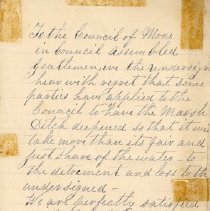 To the Council of Moore
in Council assembled
Gentlemen, we the undersign
hear with regret that some
parties have applied to the
Council to have the Marsh
Ditch deepened so that it will
take more than its fair and
just share of the water - to
the detriment and loss to the
undersigned -
We are perfectly satisfied